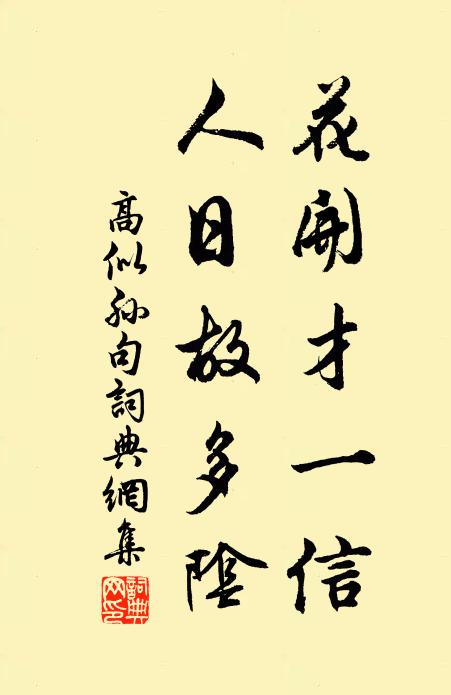 花開才一信
人日故多陰
高似孫句詞典網集
詞典網印